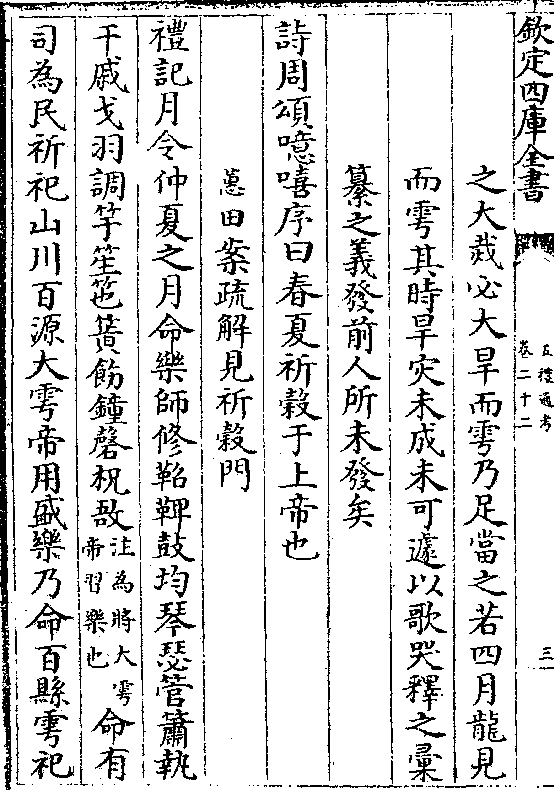 欽定四庫全書
五禮通考
卷二十二
三
之大烖必大旱而雩乃足當之若四月龍見
而雩其時旱灾未成未可遽以歌哭釋之彙
纂之義發前人所未發矣
詩周頌噫嘻序曰春夏祈穀于上帝也
蕙田案疏解見祈穀門
禮記月令仲夏之月命樂師修鞀鞞鼓均琴瑟管簫執
干戚戈羽調竽笙箎簧飭鐘磬柷敔注為時大雩帝習樂也命有
司為民祈祀山川百源大雩帝用盛樂乃命百縣雩祀